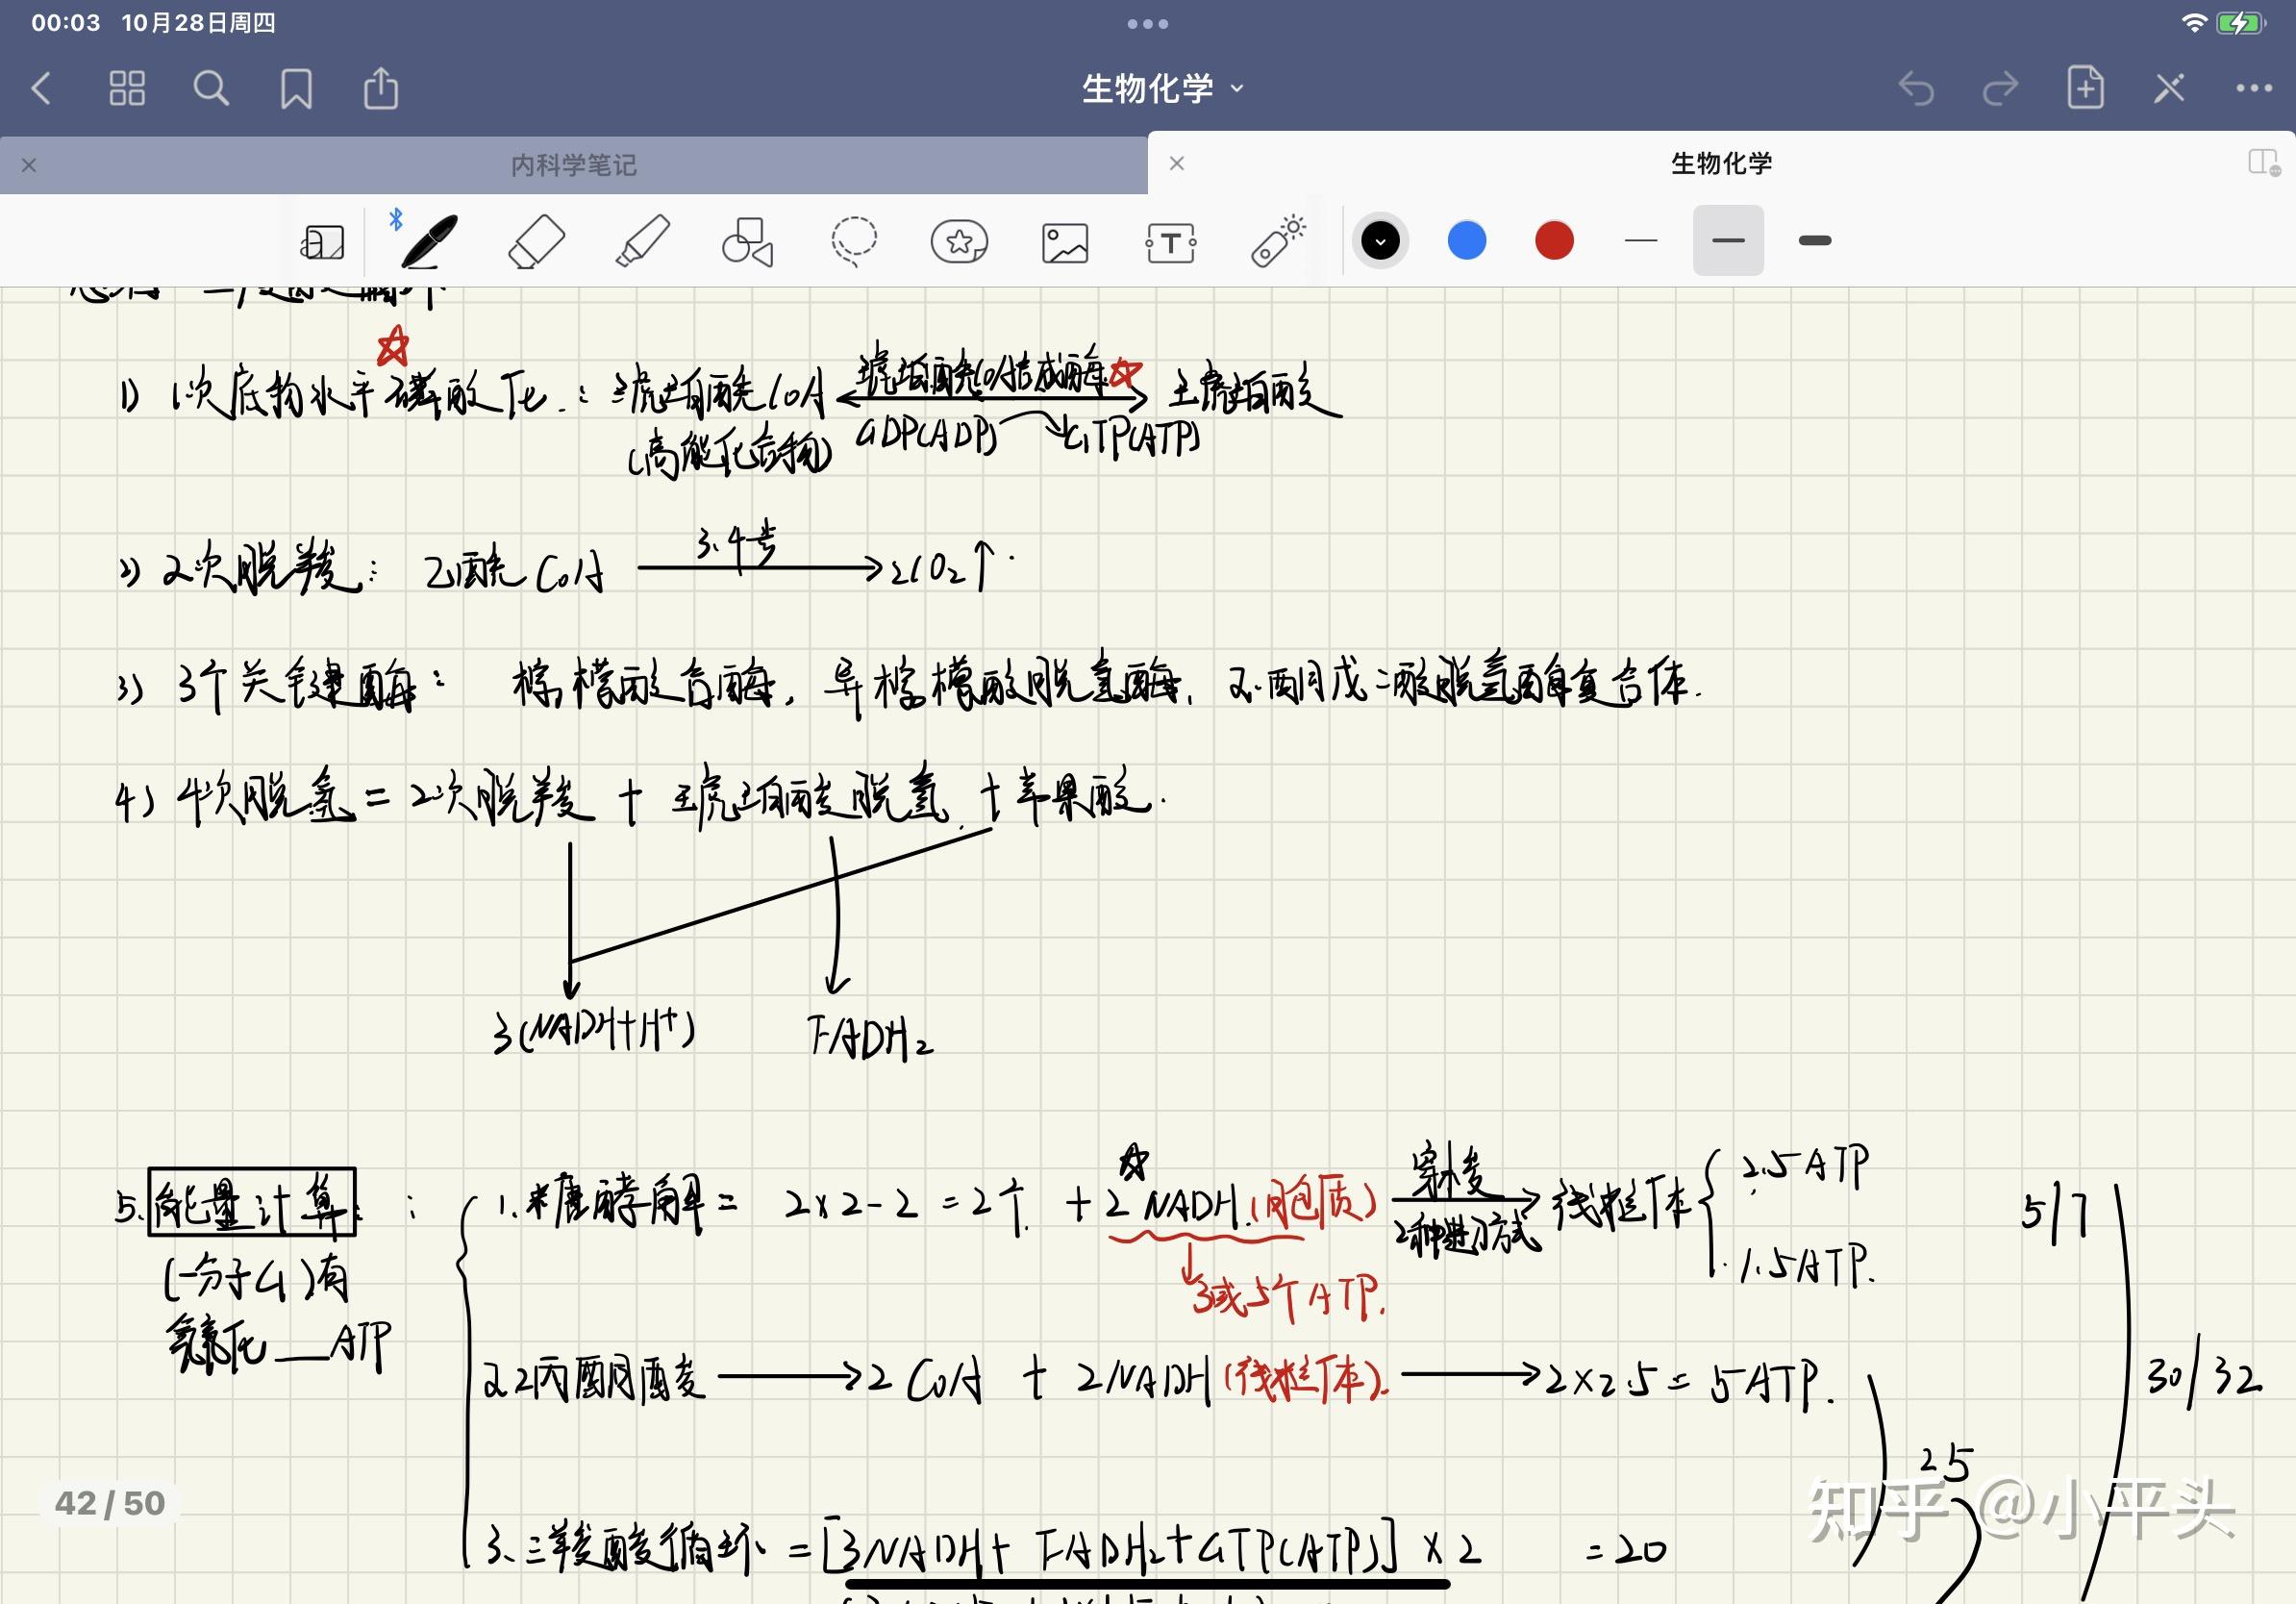 00:03 10月28日周四
生物化学
内科学笔记
生物化学
1) 1次底物水平磷酸化: 琥珀酰CoA 琥珀酰CoA合成酶 琥珀酸
(高能化合物) GDP(ADP) GTP(ATP)
2) 2次脱羧: 乙酰CoA 3.4步 2CO2↑.
3) 3个关键酶: 柠檬酸合酶, 异柠檬酸脱氢酶, α-酮戊二酸脱氢酶复合体.
4) 4次脱氢 = 2次脱羧 + 琥珀酸脱氢 + 苹果酸.
3(NADH+H+) FADH2
5. 能量计算: 1. 糖酵解 = 2×2-2 =2个 + 2NADH (胞质) 穿梭 2种进入方式 线粒体 2.5ATP 1.5ATP. 5/7
(一分子G)有
氧氧化__ATP
3或5个ATP.
2. 2丙酮酸 → 2CoA + 2NADH (线粒体). → 2×2.5 = 5ATP. 30/32
25
3. 三羧酸循环 = [3NADH+ FADH2+GTP(ATP)] ×2 =20
42 / 50
知乎 @小平头